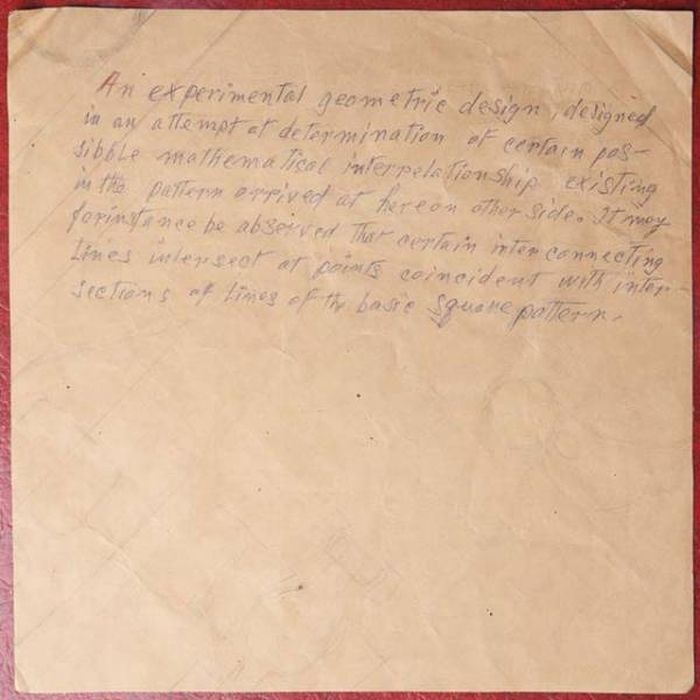 An experimental geometric design, designed
in an attempt at determination of certain pos-
sibble mathematical interrelationship existing
in the pattern arrived at hereon other side. It may
forinstance be observed that certain inter connecting
Lines intersect at points coincident with inter-
sections of Lines of the basic square pattern.